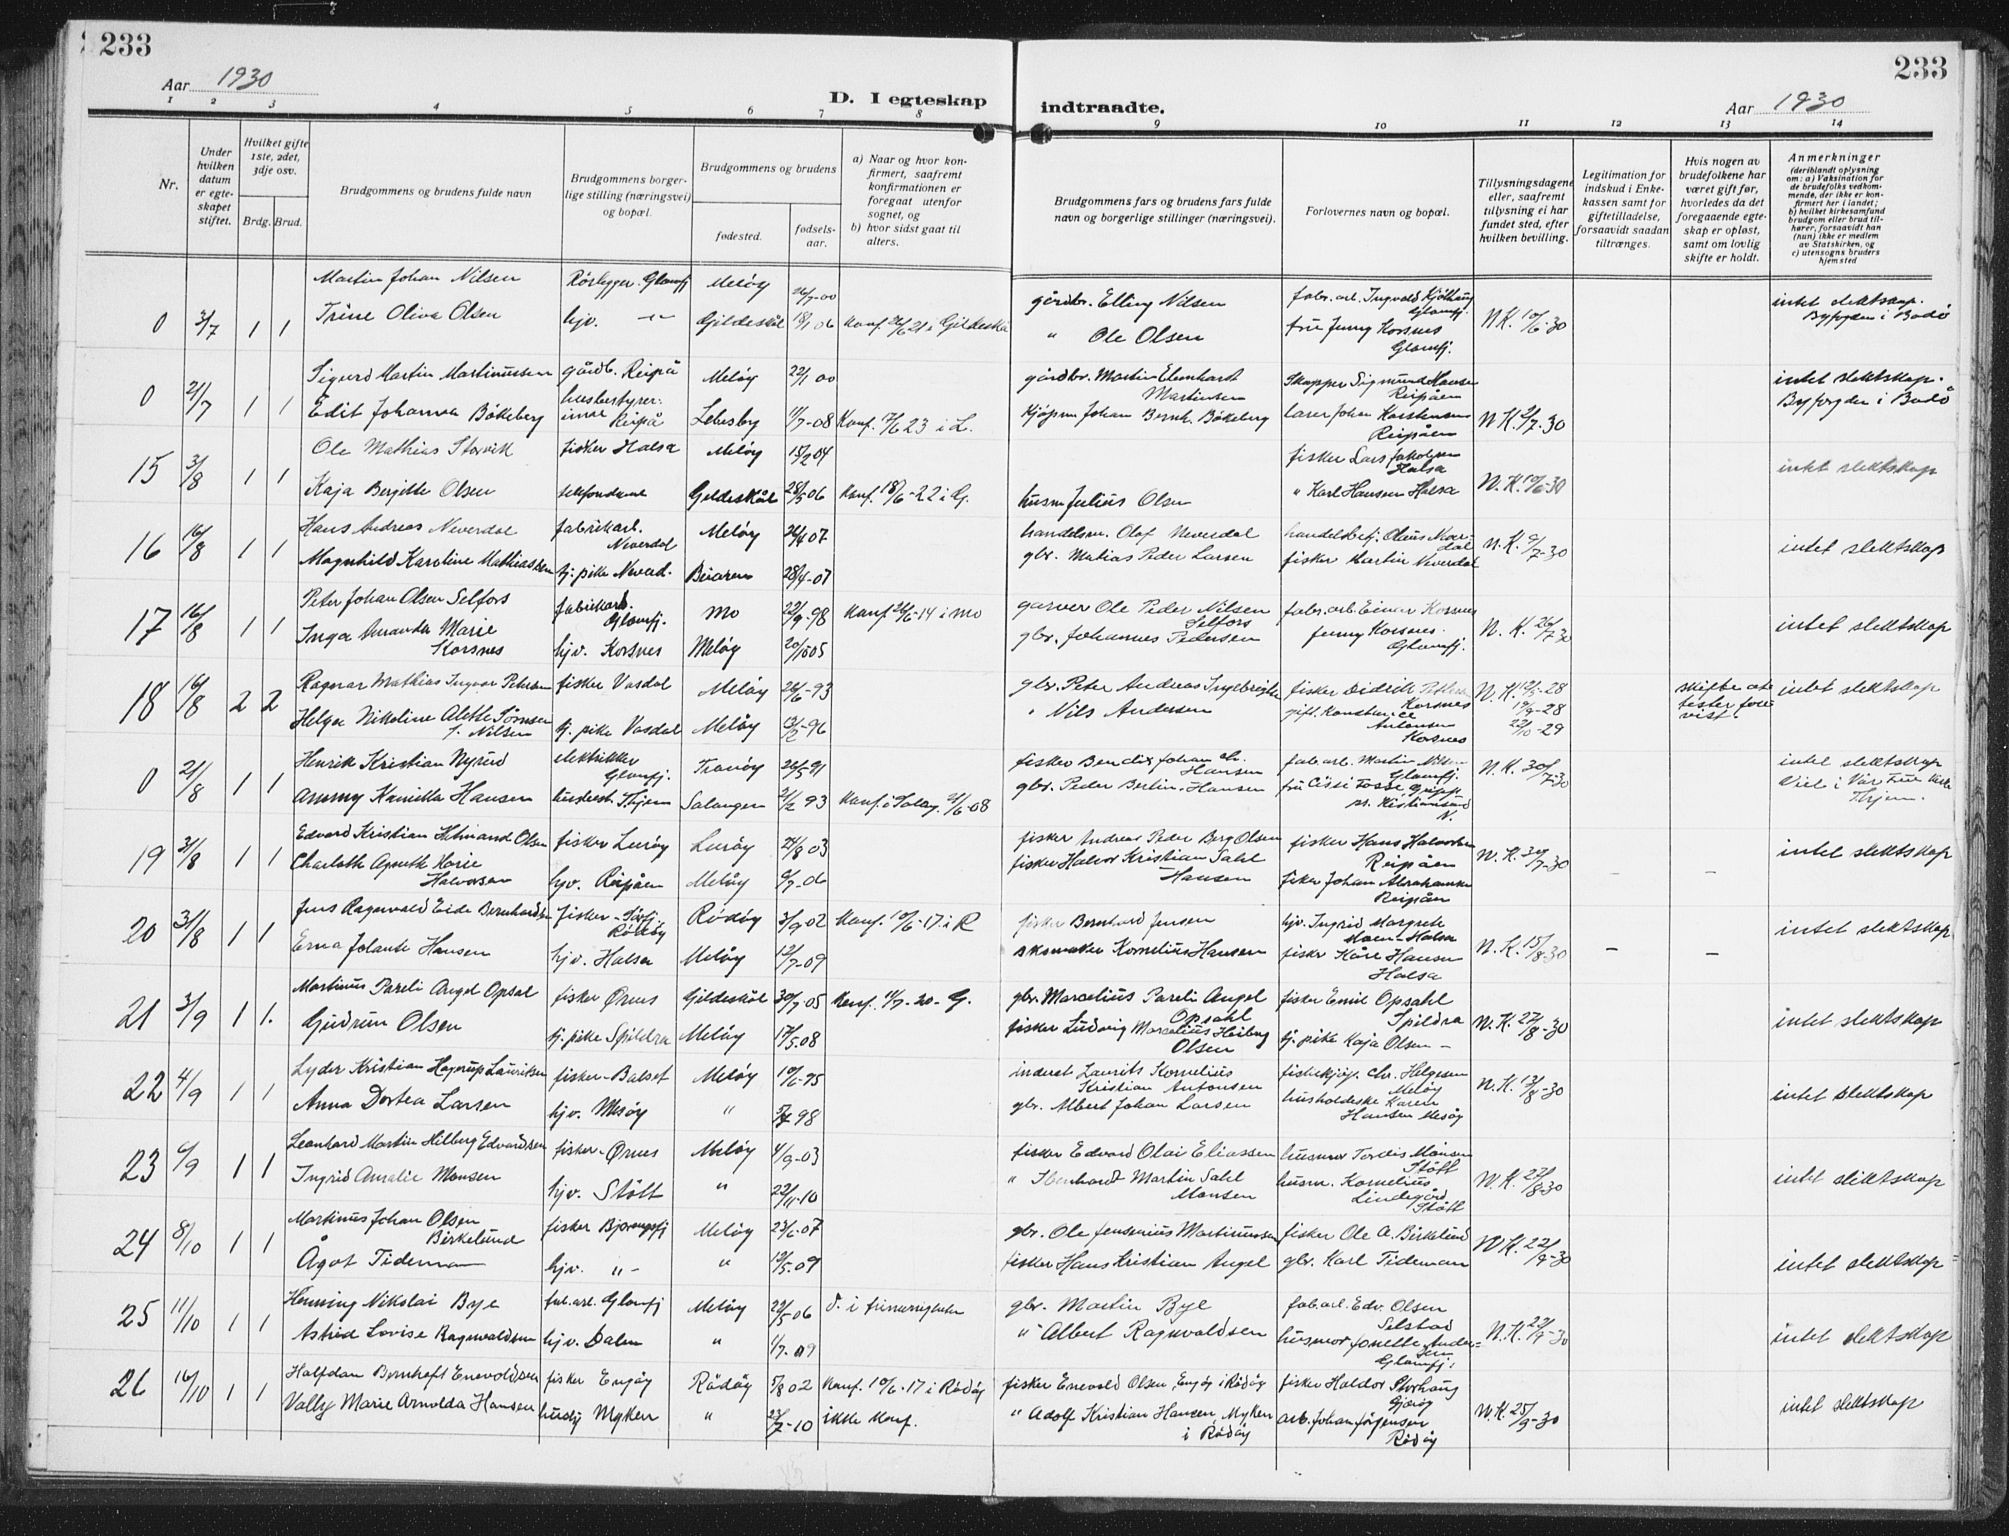 233
233
Aar 1930
D. I egteskap indtraadte.
Aar 1930
1 2 3 4 5 6 7 8 9 10 11 12 13 14
Nr.
Under hvilken datum er egteskapet stiftet.
Hvilket gifte 1ste, 2det, 3dje osv.
Brdg. Brud.
Brudgommens og brudens fulde navn
Brudgommens borgerlige stilling (næringsvei) og bopæl.
Brudgommens og brudens
fødested.
fødselsaar.
a) Naar og hvor konfirmert, saafremt konfirmationen er foregaat utenfor sognet, og
b) hvor sidst gaat til alters.
Brudgommens fars og brudens fars fulde navn og borgerlige stillinger (næringsvei).
Forlovernes navn og bopæl.
Tillysningsdagene eller, saafremt tillysning ei har fundet sted, efter hvilken bevilling.
Legitimation for indskud i Enkekassen samt for giftetilladelse, forsaavidt saadan tiltrænges.
Hvis nogen av brudefolkene har været gift før, hvorledes da det foregaaende egteskap er opløst, samt om lovlig skifte er holdt.
Anmerkninger
(deriblandt oplysning om: a) Vaksination for de brudefolks vedkommende, der ikke er konfirmert her i landet; b) hvilket kirkesamfund brudgom eller brud tilhører, forsaavidt han (hun) ikke er medlem av Statskirken, og c) utensogns bruders hjemsted
0 3/7 1 1 Martin Johan Nilsen Rørlegger. Glomfj Meløy 26/7-00 gårdbr. Elling Nilsen fabr.arb. Ingvald Kjølhaug Glomfj. N.K. 10/6-30 intet slektskap. Byfogden i Bodø
Trine Oliva Olsen hjv. -"- Gildeskål 18/1 06 Konf. 26/6 21 i Gildeskål " Ole Olsen fru Jenny Korsnes Glomfj.
0 21/7 1 1 Sigurd Martin Martinussen gårdb. Reipå Meløy 22/1 00 gårdbr. Martin Martinsen Skipper Sigmund Hansen Reipåen N.K. 30 intet slektskap. Byfogden i Bodø
Edit Johanna Bökeberg husbestyrerinne Reipå Lebesby 11/7-08 Konf. 17/6 23 i L. Kjøpm Johan Bernh. Bökeberg Johan Karstensen Reipåen
15 3/8 1 1 Ole Mathias Storvik fisker Halsa Meløy 15/2 04 fisker Lars Jakobsen Halsa N.K. 10/6-30 intet slektskap
Kaja Bergitte Olsen Gildeskål 28/5 06 Konf. 18/6-22 i G. husm Julius Olsen " Karl Hansen Halsa
16 16/8 1 1 Hans Andreas Neverdal fabrikarb. Neverdal Meløy 26/4 07 handelsm. Olaf Neverdal handelsbetj. Olaus Neverdal N.K. 9/7-30 intet slektskap
Magnhild Karoline Mathiassen tj. pike Neverd. Beiaren 28/4-07 gbr. Matias Peder Larsen fisker Martin Neverdal
17 16/8 1 1 Peter Johan Olsen Selfors fabrikarb. Glomfj. Mo 22/9-98 Konf. 21/6-14 i Mo garver Ole Peder Nilsen Selfors fabr.arb. Einar Korsnes N.K. 26/7 30 intet slektskap
Inga Amanda Marie Korsnes hjv. Korsnes Meløy 20/10 05 gbr. Johannes Pedersen Jenny Korsnes. Glomfj.
18 16/8 2 2 Ragnar Mathias Ingvar Petersen fisker Vasdal Meløy 26/6-93 gbr. Peter Andreas Ingebrigtsen fisker Didrik Korsnes N.K. 28 skifteattester forevist. intet slektskap
Helga Nikoline Alette Sørnsen f. Nilsen tj. pike Vasdal Meløy 13/2-96 " Nils Andersen Antonsen Korsnes 19/9-28 22/10-29
0 21/8 1 1 Henrik Kristian Nyrud elektrikker Glomfj. Tranøy 26/5 91 fisker Bendix Johan Chr. Hansen fab.arb. Martin Nilsen Glomfj. N.K. 30/7-30 intet slektskap Viel i Vår Frue kirke Thjem.
Ammy Kamilla Hansen husbest. Thjem Salangen 21/2 93 Konf. i Salang. 21/6-08 gbr. Peder Berlin Hansen fru Cissi Fosse Kristiansund N.
19 31/8 1 1 Edvard Kristian Hilmand Olsen fisker Lurøy Lurøy 24/8 03 fisker Andreas Peder Berg Olsen fisker Hans Halvorsen Reipåen N.K. 30/7-30 intet slektskap
Charlotte Agnethe Marie Halvorsen hjv. Reipåen Meløy 9/7-06 fisker Halvor Kristian Dahl Hansen fisker Johan Abrahamsen Reipåen
20 31/8 1 1 Jens Ragnvald Eide Bernhardsen fisker-Sørfj. Rödøy Rödøy 3/9 02 Konf. 10/6-17 i R fisker Bernhard Jensen hjv. Ingrid Margrete Moen-Halsa N.K. 15/8-30 intet slektskap
Erna Jolante Hansen hjv. Halsa Meløy 12/7-09 skomaker Kornelius Hansen fisker Kåre Hansen Halsa
21 3/9 1 1. Martinus Pareli Angel Opsal fisker Ørnes Gildeskål 30/7-05 Konf. 11/7-20-G. gbr. Marcelius Pareli Angel Opsahl fisker Emil Opsahl Spildra N.K. 27/8-30 intet slektskap
Gudrun Olsen tj. pike Spildra Meløy 17/5-08 fisker Ludvig Marcelius Heiberg Olsen tj. pike Kaja Olsen -
22 4/9 1 1 Lyder Kristian Hagerup Lauritsen fisker-Bolset Meløy 10/6-95 inderst Laurits Kornelius Kristian Antonsen fiskekjøp. Chr. Helgesen Meløy N.K. 13/8-30 intet slektskap
Anna Dortea Larsen hjv. Mesøy " 98 gbr. Albert Johan Larsen husholderske Karen Hansen Mesøy
23 6/9 1 1 Leonhard Martin Hilberg Edvardsen fisker-Ørnes Meløy 4/9-03 fisker Edvard Olai Eliassen husmor Tordis Månsen Støtt N.K. 22/8-30 intet slektskap
Ingrid Amalie Monsen hjv. Støtt " 22/11-10 " Martin Dahl Monsen husm. Kornelius Lindegård Støtt
24 8/10 1 1 Martinus Johan Olsen Birkelund fisker Bjerangsfj Meløy 23/6-07 gbr. Ole Jensenius Martinussen fisker Ole A. Birkelund N.K. 22/9-30 intet slektskap
Ågot Tideman hjv. "- " 12/5-09 fisker Hans Kristian Angel gbr. Karl Tideman
25 11/10 1 1 Henning Nikolai Bye fab.arb. Glomfj Meløy 22/5 06 d. i frimenigheten gbr. Martin Bye fab.arb. Edv. Olsen Selstad N.K. 22/9-30 intet slektskap
Astrid Lovise Ragnvaldsen hjv. Dalen " 11/7-09 " Albert Ragnvaldsen husmor Jonette Andersen Glomfj.
26 16/10 1 1 Halfdan Bernhoft Enevoldsen fisker Engøy Rødøy 5/8 02 Konf. 10/6-17 i Rødøy fisker Enevold Olsen, Engøy i Rødøy fisker Haldor Storhaug Gjerøy N.K. 25/9-30 intet slektskap
Vally Marie Arnolda Hansen husby Myken " 23/7-10 ikke konf. " Adolf Kristian Hansen, Myken i Rødøy arb. Johan Jörgensen Rödøy